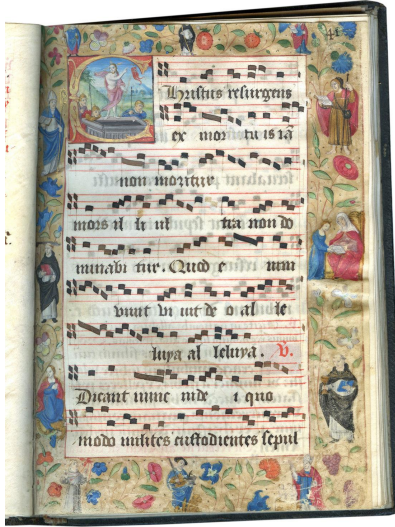 Christus resurgens
ex mortuis iā
non moritur
mors il li ul tra non do
minabi tur. Quod e nim
viuit vi uit de o al le
luya al leluya. V.
Dicant nunc inde i quo
modo milites custodientes sepul